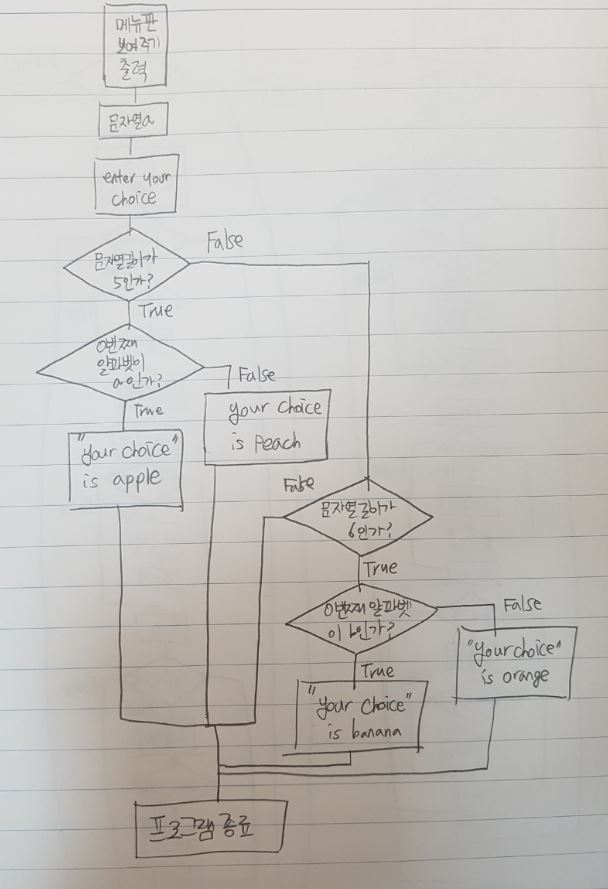 메뉴판
보여주기
출력
문자열a
enter your
choice
문자열길이가
5인가?
False
True
0번째
알파벳이
a인가?
False
True
your choice
is peach
"your choice"
is apple
False
문자열길이가
6인가?
True
0번째 알파벳
이 b인가?
False
True
"your choice"
is orange
"your choice"
is banana
프로그램 종료